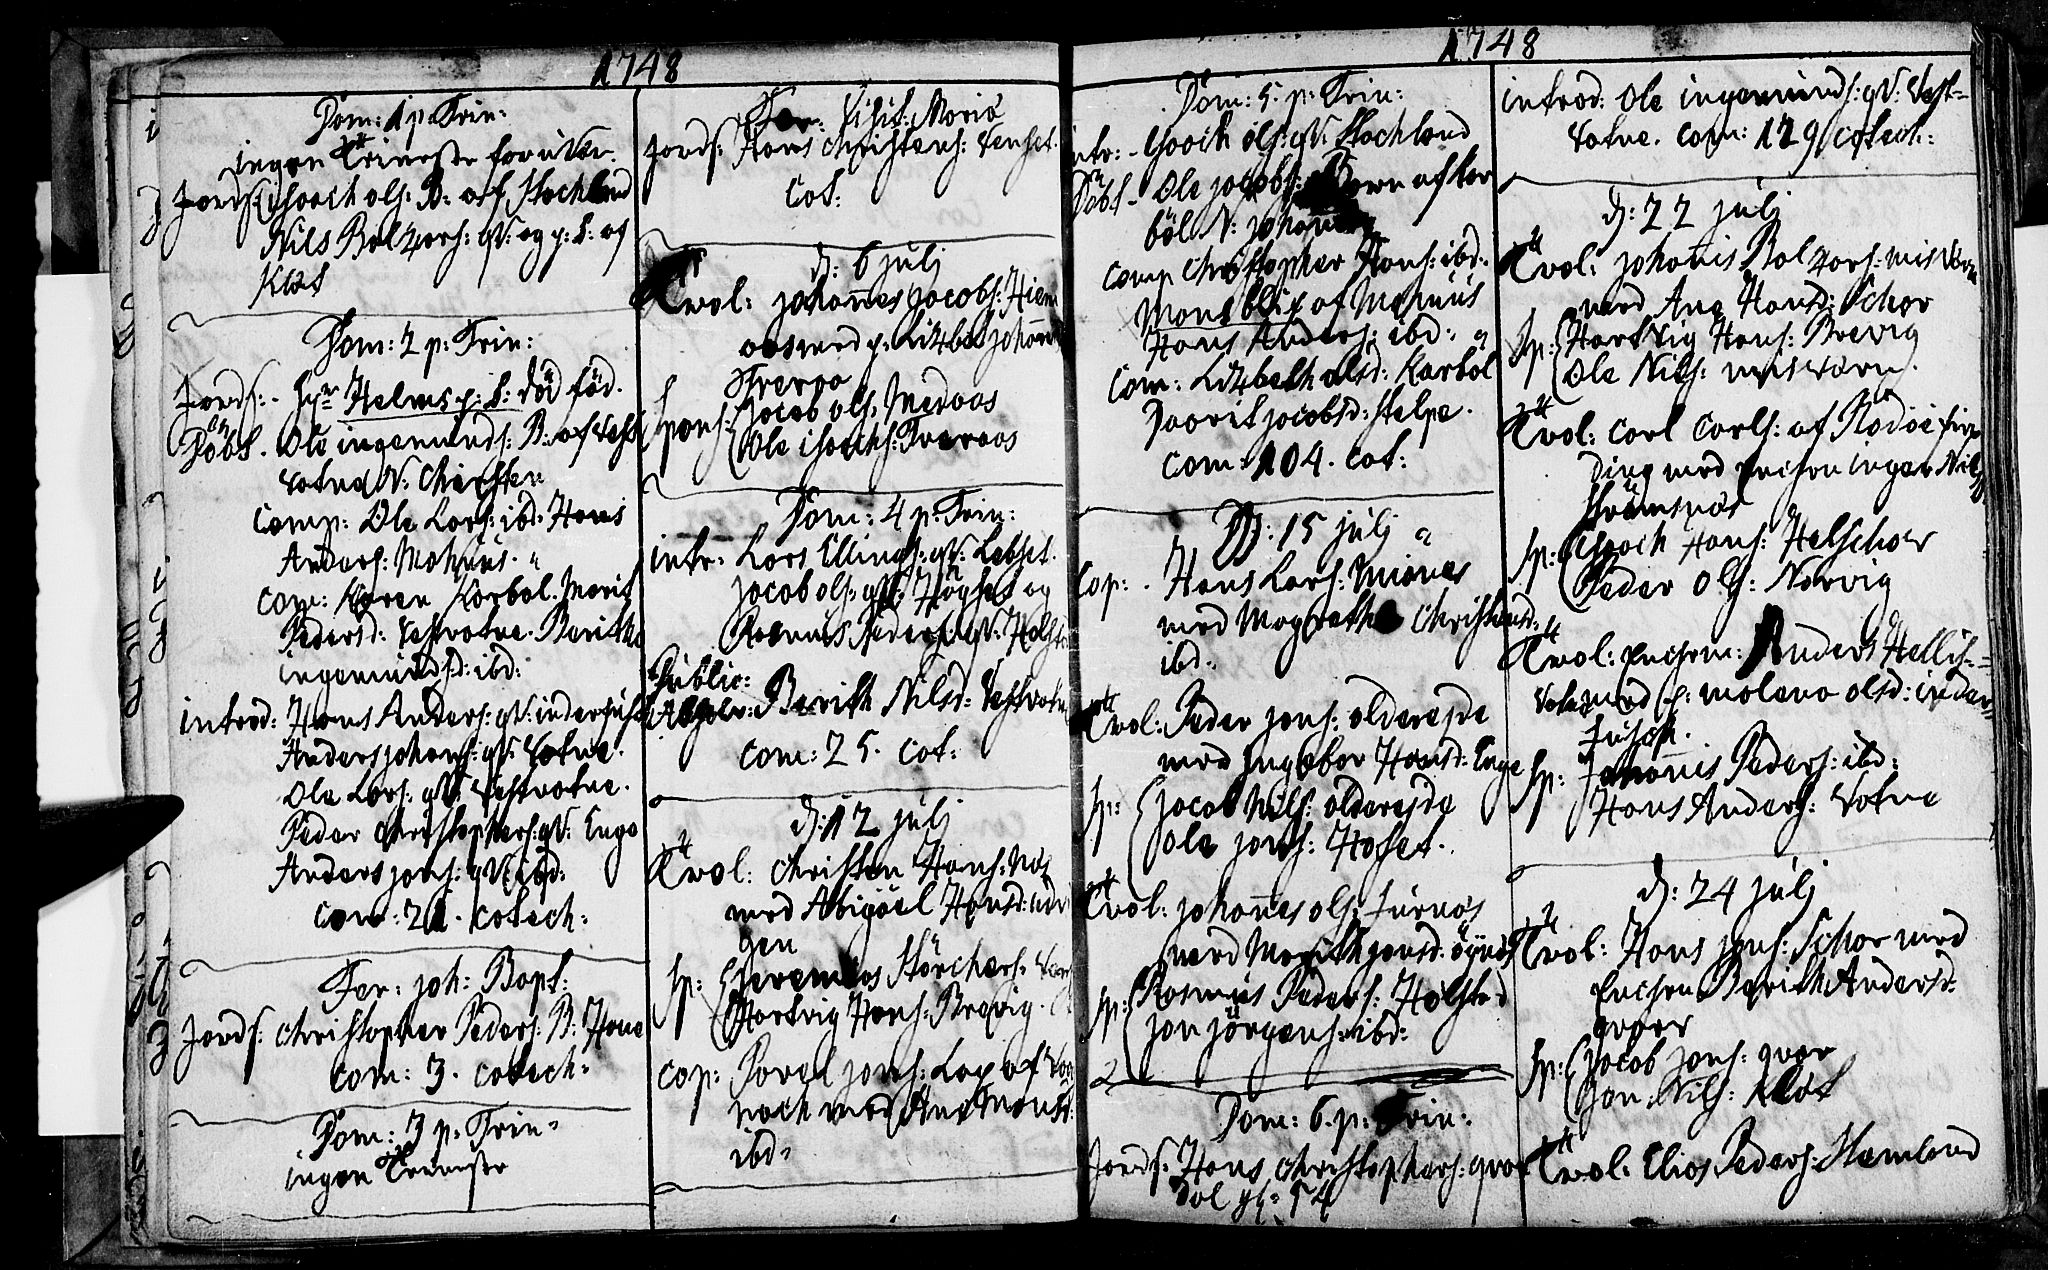 1748
Dom: 1 p: Trin:
ingen Tieneste forutter.
Jords: Isach ols: B: af Stochland
Nils Baltzers: qv: og p: b: af
Klot
Dom: 2 p: Trin:
Jords: Hr Helms p: b: död föd.
Döbt. Ole ingemunds: B: af Vest
votne N: Christen
Comp: Ole Lars: ibd: Hans
Anders: Mohnus
Com: Karen Karbøl. Marit
Pedersd: Vestvotne. Berithe
ingemundsd: ibd:
introd: Hans Anders: qv: inder
Anders johans: qv: Votne.
Ole Lars: qv: Vestvotne.
Peder Christophers: qv: Enge
Anders jons: qv: ibd:
Com: 21. catech:
Fer: joh: Bapt:
Jords: Christopher Peders: B: Hone
Com: 3. catech:
Dom: 3 p: Trin:
ingen Tieneste
Fer: Visit: Mariä
Jords: Hans Christens: Venset.
Cat:
d: 6 julj
Trol: johannes jacobs: Hiem
aas med p: Litzbet johann
Freraa
Spons: Jacob ols: Meraas
Ole Isachs: Freraas
Dom: 4 p: Trin:
intr: Lars Ellings: qv: Lebset.
jacob ols: qv: Högset og
Rasmus Peders: qv: Holst
Public:
Absolv: Berith Nilsd: Vestvotne
Com: 25. Cat:
d: 12 julj
Trol: Christen Hans: Næs
med Abigäel Hansd:
gen
Sp: Jeremias Störchers:
Hartvig Hans: Brevig.
Cop: Povel jons: Lap af
med Ane Monsd:
ibd:
1748
Dom: 5. p: Trin:
intr: Isach ols: qv: Stochland
Döbt. Ole jacobs: Barn af Kar
böl N: johannes
Comp Christopher Hans: ibd:
Mons blix af Mohnus
Hans Anders: ibd:
Com: Litzbeth olsd: Karböl
Daarit jacobsd: Stelpe.
Com: 104. Cat:
D: 15 julj
Cop: Hans Lars: Miönes
med Magrethe Christensd:
ibd:
Trol: Peder jons: olderejde
med Ingebor Hansd: Enge
Sp: Jacob Nils: olderejde
Ole jons: Hoset.
Trol: johannes ols: Furnæs
med Marith jonsd:
Sp: Rasmus Peders: Holsted
Jon jörgens: ibd:
Dom: 6. p: Trin:
Jords: Hans Christophers: qvar
dal gl: 54
introd: Ole ingemunds: qv: Vest-
votne. Com: 129 catech:
d: 22 julj
Trol: johanis Baltzers: misvær
med Ane Hansd: Schor
Sp: Hartvig Hans: Brevig
Ole Nils: misværn.
Trol: Carl Carls: af Rödöe
ding med Enchen inger Nilsd
Strömsnæs
Sp: Isach Hans: Helschor
Peder Ols: Norvig
Trol: Enchem: Anders Hellis-
votne med p: malena olsd: inder
Sp: Johannis Peders: ibd:
Hans Anders: Votne
d: 24 julj
Trol: Hans jons: Schor med
Enchen Berith Andersd:
qvar
Sp: Jacob jons: qvar
Jon Nils: Klöt
Trol: Elias Peders: Stemland